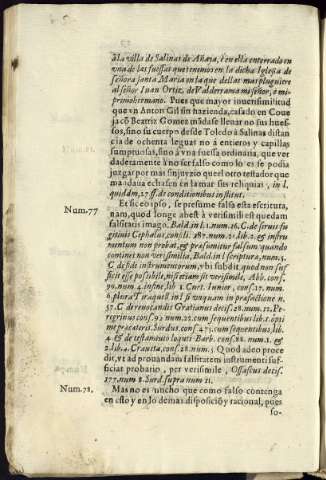 à la villa de Salinas de Añaja, è en ella enterrado en
vna de las fuessas que tenemos en la dicha Iglesia de
señora santa Maria en la que dellas mas pluguiere
al señor Iuan Ortiz, de Valderrama mi señor, à mi
primo hermano. Pues que mayor inuerisimilitud
que vn Anton Gil sin hazienda, casado en
jacò Beatriz Gomez mãdase lleuar no sus hues-
sos, sino su cuerpo desde Toledo à Salinas distan
cia de ochenta leguas no à entierro y capillas
sumptuosas, sino à vna fuessa ordinaria, que ver
daderamente à no ser falso como lo es se podia
juzgar por mas sin juyzio que el otro testador que
mandaua echassen en la mar sus reliquias, in l.
quidam, 27 ff. de conditionibus instit.
Num. 77 Et sic eo ipso, se presume falsa esta escritura,
nam, quod longe abest à verisimili est quædam
falsitatis imago. Bald. in l. 1. num. 16. C. de seruis fu
gitiuis Cephalus, consil. 287. num. 21. lib. 2. & instru
mentum non probat, & præsumitur falsum quando
continet non verisimilia, Bald. in l. scriptura, num. 5.
C. de fide instrumentorum, vbi subdit, quod non suf
ficit esse possibile, nisi etiam sit verisimile, Abb. cons.
90. num. 4. in fine, lib. 1. Curt. Iunior, cons. 17. num.
6. plena Tiraquell. in l. si vnquam in præfactione n.
57. C. de reuocandis Gratianus decis. 28. num. 12. Pe-
regrinus cons. 92. num. 22. cum sequentibus lib. 1. opti
me præcateris Surdus cons. 475. cum sequentibus, lib.
4. & de testamento loquitur Barb. cons. 22. num. 1. &
2. lib. 4. Crauetta, cons. 28. num. 5. Quod adeo proce
dit, vt ad probandam falsitatem instrumenti suf-
ficiat probatio, per verisimile, Osascus decis.
177. num 8. Surd. supra num 11.
Num. 78. Mas no es mucho que como falso contenga
en esto y en lo demas disposiciõ y racional, pues
so-